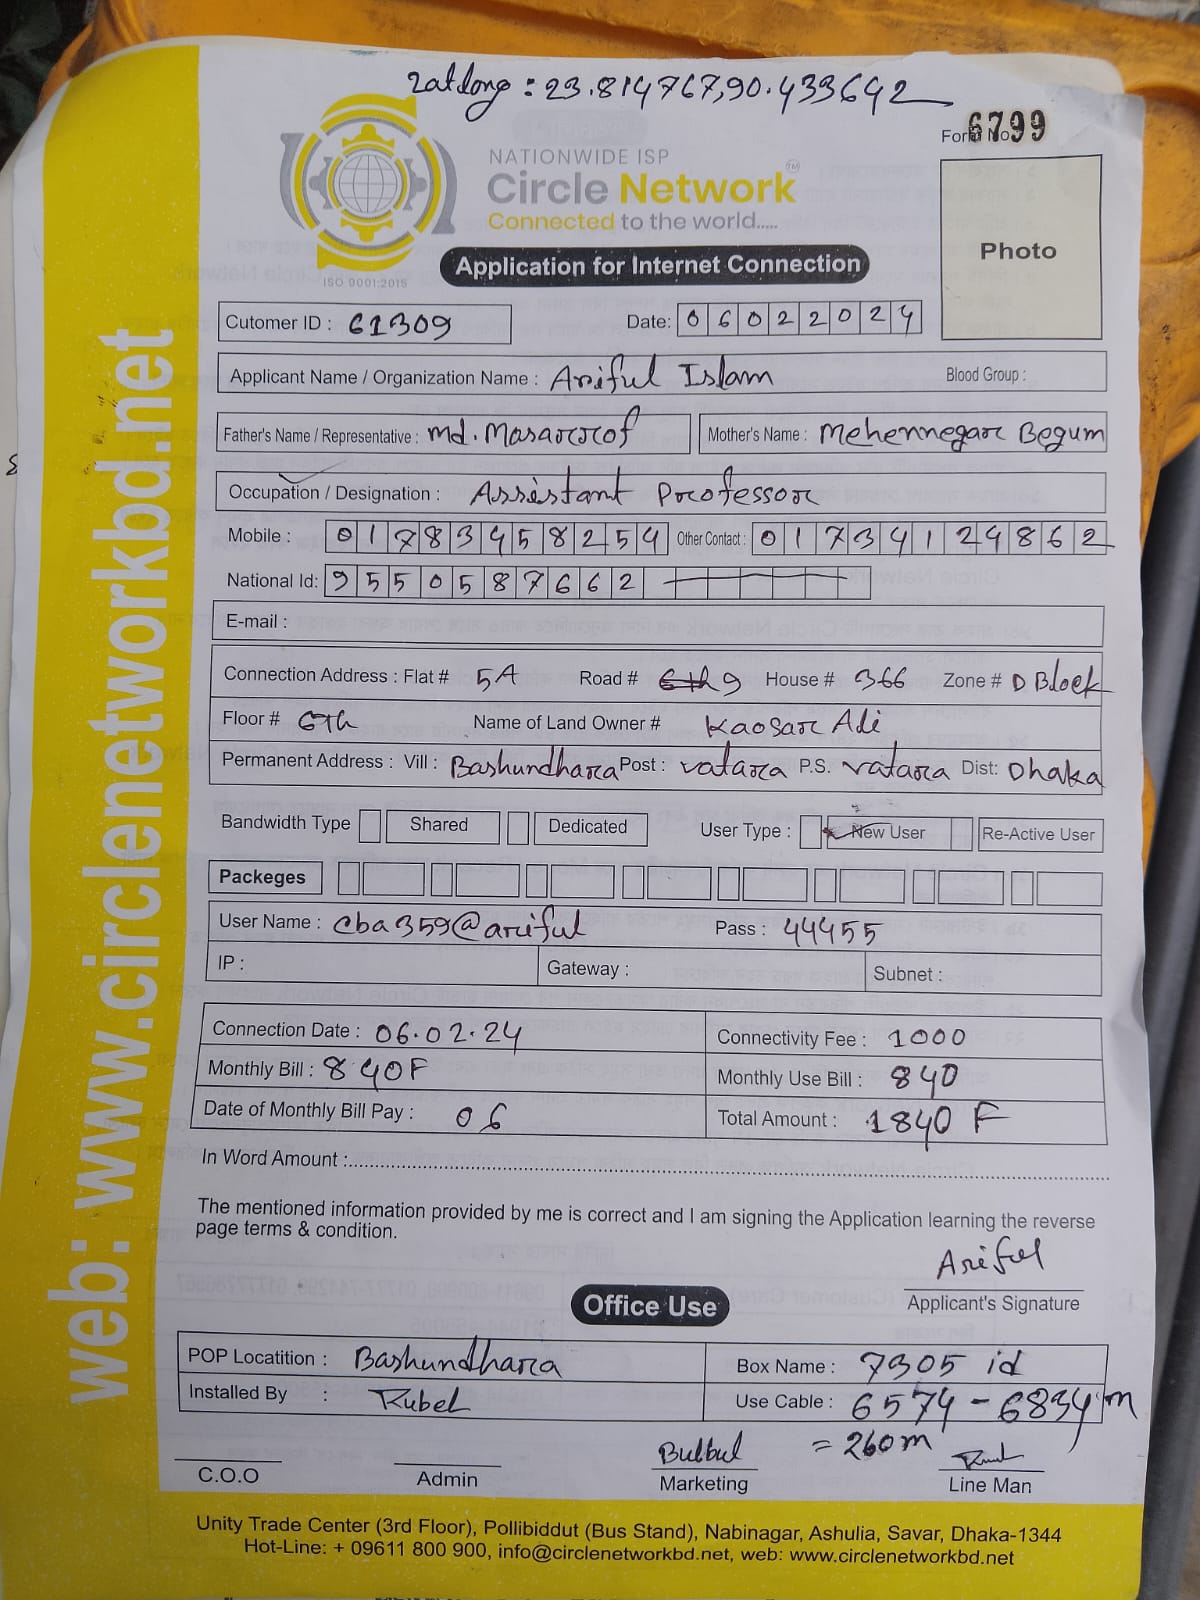 Latlong : 23.814767,90.433642
Form No 6799
NATIONWIDE ISP
Circle Network TM
Connected to the world.....
ISO 9001:2015
Application for Internet Connection
Photo
Cutomer ID : 61309 Date: 06022024
Applicant Name / Organization Name : Ariful Islam Blood Group :
Father's Name / Representative : md. Masarrof Mother's Name : Mehernegar Begum
Occupation / Designation : Assistant Professor
Mobile : 01783458254 Other Contact : 01734124862
National Id: 9550587662
E-mail :
Connection Address : Flat # 5A Road # 6th 9 House # 366 Zone # D Block
Floor # 6Th Name of Land Owner # Kaosar Ali
Permanent Address : Vill : Bashundhara Post : vatara P.S. vatara Dist: Dhaka
Bandwidth Type Shared Dedicated User Type : New User Re-Active User
Packeges
User Name : cba359@ariful Pass : 44455
IP : Gateway : Subnet :
Connection Date : 06.02.24 Connectivity Fee : 1000
Monthly Bill : 840F Monthly Use Bill : 840
Date of Monthly Bill Pay : 06 Total Amount : 1840 F
In Word Amount :
The mentioned information provided by me is correct and I am signing the Application learning the reverse
page terms & condition.
Ariful
Applicant's Signature
Office Use
POP Locatition : Bashundhara Box Name : 7305 id
Installed By : Rubel Use Cable : 6574-6834m
= 260m
Bulbul
C.O.O Admin Marketing Line Man
Unity Trade Center (3rd Floor), Pollibiddut (Bus Stand), Nabinagar, Ashulia, Savar, Dhaka-1344
Hot-Line: + 09611 800 900, info@circlenetworkbd.net, web: www.circlenetworkbd.net
web: www.circlenetworkbd.net